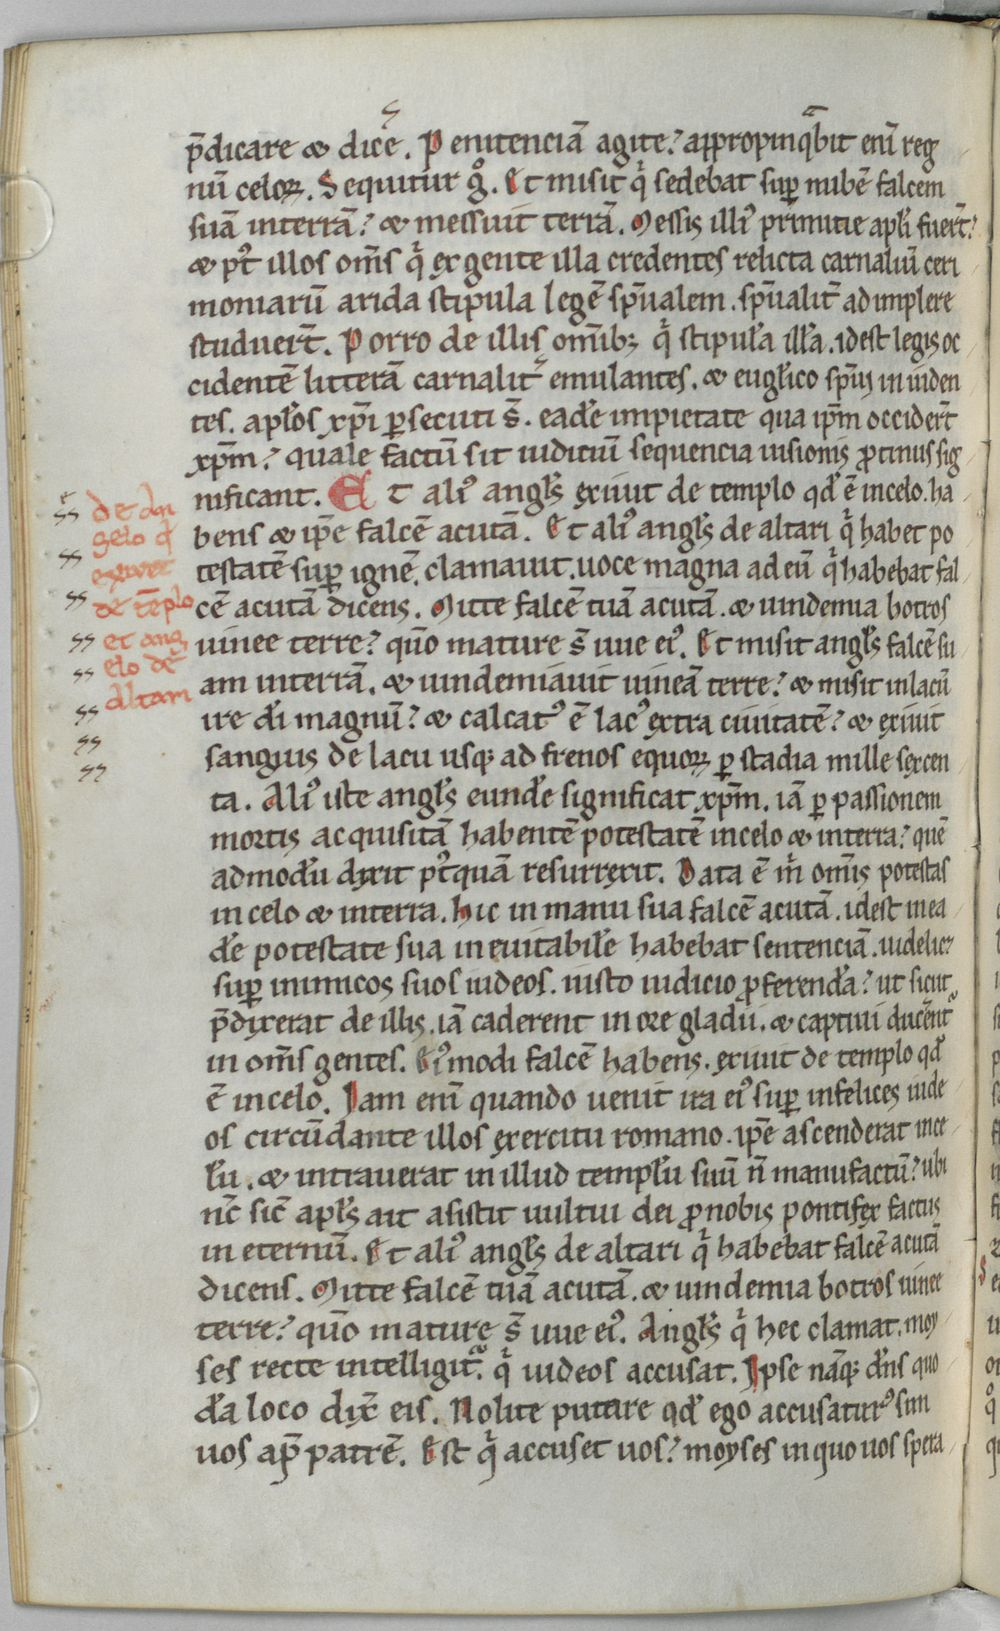 p̄dicare ⁊ dic̄e. Penitenciā agite? appropinq̄bit eni̅ reg
nū celoꝝ. Sequitur g̊. Et misit q̇ sedebat sup̱ nubē falcem
suā interrā? ⁊ messuit terrā. Messis illiꝰ primitie apl̓i fuer̄t?
⁊ pꝰt illos om̄s q̇ ex gente illa credentes relicta carnaliū ceri
moniarū arida stipula legē sp̄ualem. sp̄ualit̄ adimplere
studuer̄t. Porro de illis omībꝫ q̇ stipul̓a ill̓a. idest legis oc
cidentē litterā carnalit̄ emulantes. ⁊ eugl̓ico sp̄ui inuiden
tes. apl̓os xp̄i p̱secuti s̄. eadē impietate qua ip̄m occider̄t
xp̄m? quale factū sit iuditiū sequencia uisionis ꝓtinus sig
nificant. Et aliꝰ angl̓s exiuit de templo qd̓ ē incelo. ha
bens ⁊ ip̄e falcē acutā. Et aliꝰ angl̓s de altari q̇ habet po
testatē sup̱ ignē. clamauit. uoce magna adeū q̇ habebat fal
cē acutā dicens. Mitte falcē tuā acutā. ⁊ uindemia botros
uinee terre? qūo mature s̄ uue eiꝰ. Et misit angl̓s falcē su
am interrā. ⁊ uindemiauit uineā terre? ⁊ misit inlacū
ire dī magnū? ⁊ calcatꝰ ē lacꝰ extra ciuitatē? ⁊ exiuit
sanguis de lacu usqꝫ ad frenos equoꝝ p̱ stadia mille sexcen
ta. Aliꝰ iste angl̓s eundē significat xp̄m. iā p̱ passionem
mortis acquisitā habentē potestatē incelo ⁊ interra? quē
admodū dixit pꝰtquā resurrexit. Data ē m̄ om̄is potestas
in celo ⁊ interra. hic in manu sua falcē acutā. idest in ea
dē potestate sua ineuitabil̓e habebat sentenciā. uidelicꝫ
sup̱ inimicos suos iudeos. iusto iudicio ꝓferenda? ut sicut
p̄dixerat de illis. iā caderent in ore gladii. ⁊ captiui ducent̄
in om̄s gentes. Eiꝰmodi falcē habens. exiuit de templo qd̓
ē incelo. Iam enī quando uenit ira eiꝰ sup̱ infelices iude
os circūdante illos exercitu romano. ip̄e ascenderat ince
lū. ⁊ intrauerat in illud templū suū n̄ manufactū? ubi
nc̄ sic̄ apl̓s ait asistit uultui dei ꝓ nobis pontifex factus
in eternū. Et aliꝰ angl̓s de altari q̇ habebat falcē acutā
dicens. Mitte falcē tuā acutā. ⁊ uindemia botros uinee
terre? qūo mature s̄ uue eiꝰ. Angl̓s q̇ hec clamat. moy
ses recte intelligit̄. q̇ iudeos accusat. Ipse nāqꝫ dn̄s quo
dā loco dix̄ eis. Nolite putare qd̓ ego accusaturꝰ sim
uos ap̱ patrē. Est q̇ accuset uos? moyses in quo uos spera
de an
gelo q̄
exivet
de tēplo
et ang
elo de
altam